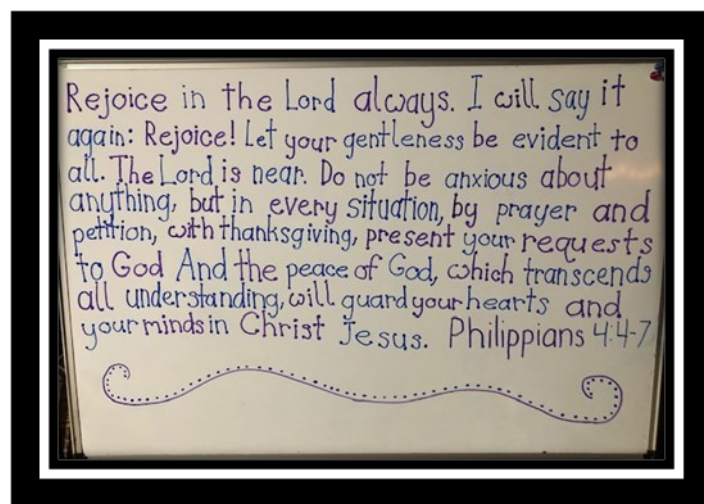 Rejoice in the Lord always. I will say it
again: Rejoice! Let your gentleness be evident to
all. The Lord is near. Do not be anxious about
anything, but in every situation, by prayer and
petition, with thanksgiving, present your requests
to God And the peace of God, which transcends
all understanding, will guard your hearts and
your minds in Christ Jesus. Philippians 4:4-7